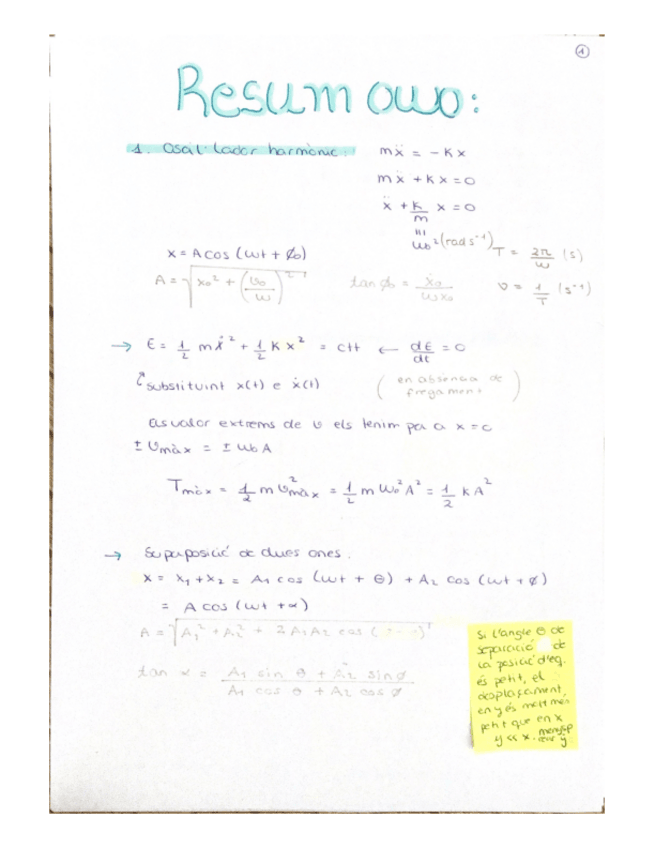 1
Resum owo:
1. Oscil·lador harmònic:
mẍ = - K x
mẍ + K x = 0
ẍ + k/m x = 0
ω₀² (rad s⁻¹)
x = A cos (ωt + ϕ₀)
T = 2π/ω (s)
A = √(x₀² + (v₀/ω)²)
tan ϕ₀ = ẋ₀/ωx₀
υ = 1/T (s⁻¹)
→ E = 1/2 mẋ² + 1/2 K x² = ctt ← dE/dt = 0
substituint x(t) e ẋ(t)
(en absència de fregament)
els valor extrems de v els tenim per a x = 0
± vmàx = ± ω₀ A
Tmàx = 1/2 m v²màx = 1/2 m ω₀² A² = 1/2 k A²
→ Superposició de dues ones.
x = x₁ + x₂ = A₁ cos (ωt + θ) + A₂ cos (ωt + ϕ)
= A cos (ωt + α)
A = √(A₁² + A₂² + 2 A₁ A₂ cos ( ) )
tan α = A₁ sin θ + A₂ sin ϕ / A₁ cos θ + A₂ cos ϕ
Si l'angle θ de
separació de
la posició d'eq.
és petit, el
desplaçament,
en y és molt més
petit que en x
y << x.